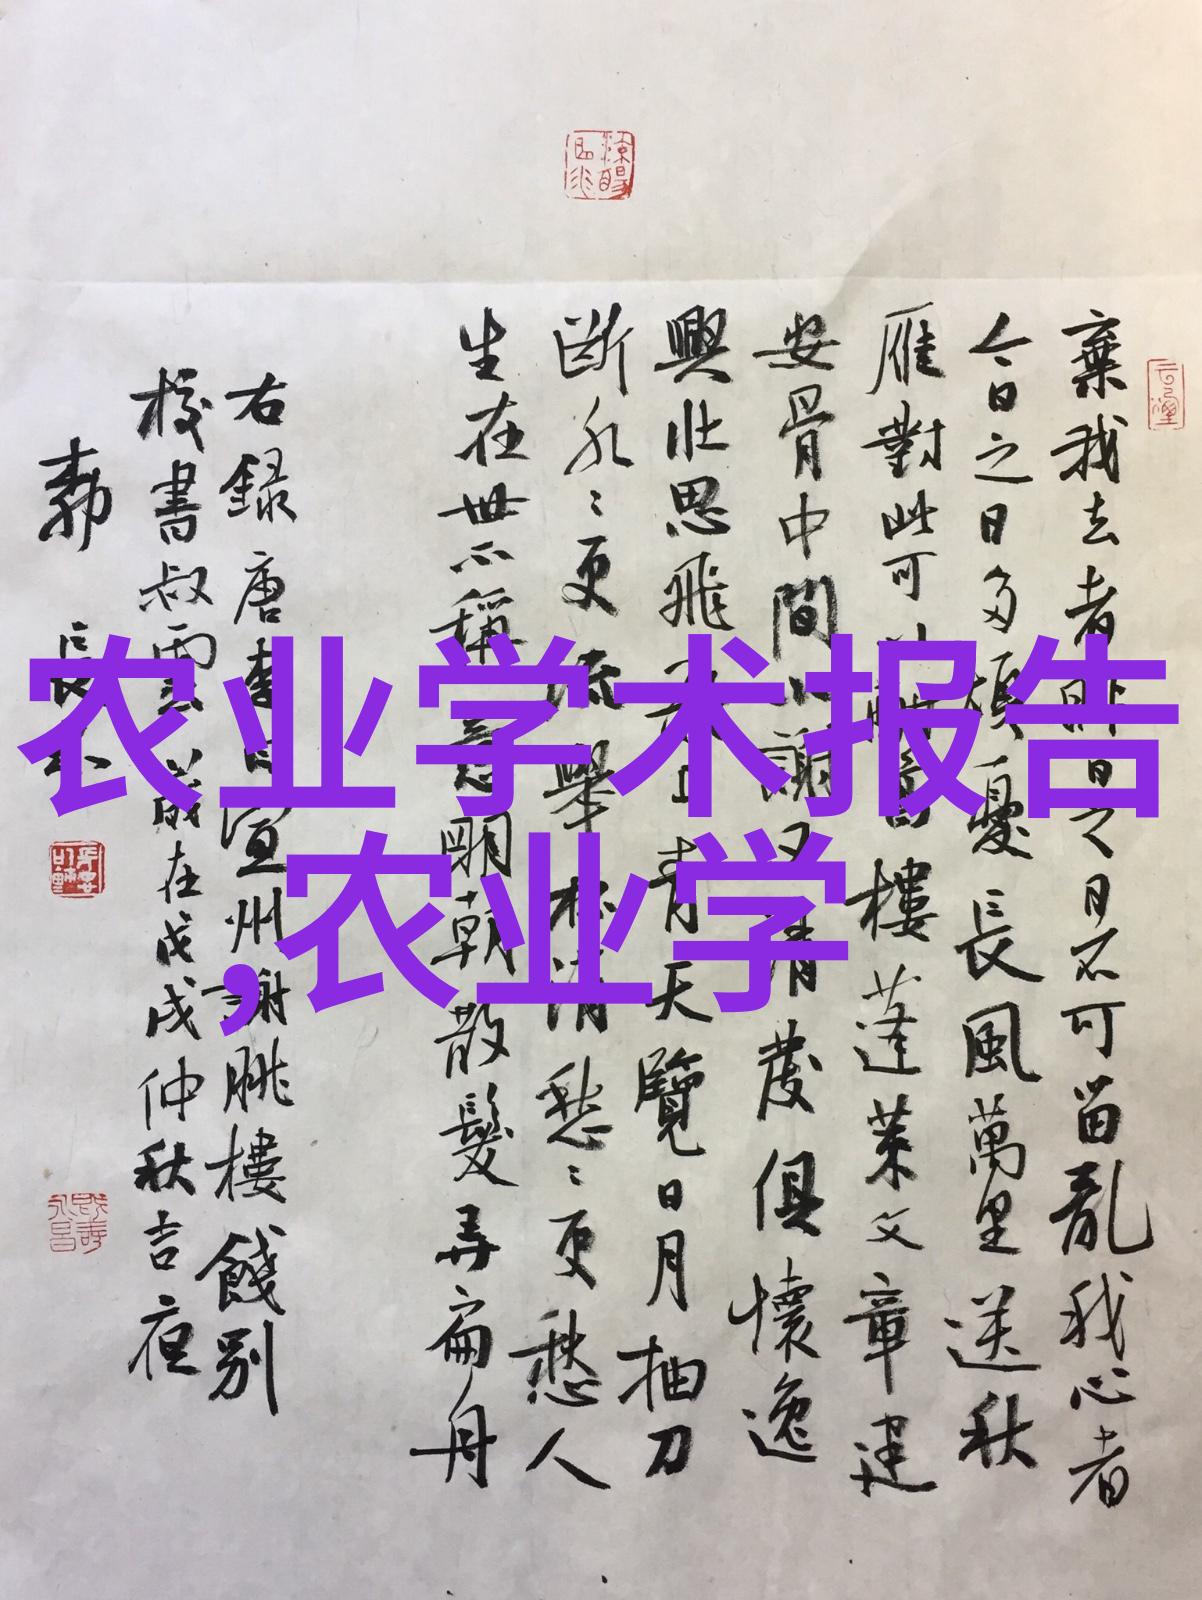 农业学术报告
,农业学
棄我去者昨日之日不可留亂我心者
今日之日多煩憂長風萬里送秋
雁對此可樓蓬萊文章建
安骨中間小謝又清發俱懷逸
興壯思飛上青天覽日月抽刀
斷水〻更流舉杯清愁〻更愁人
生在世不稱意明朝散髮弄扁舟
右録唐李白宣州謝朓樓餞別
校書叔雲歲在戊戌仲秋吉夜